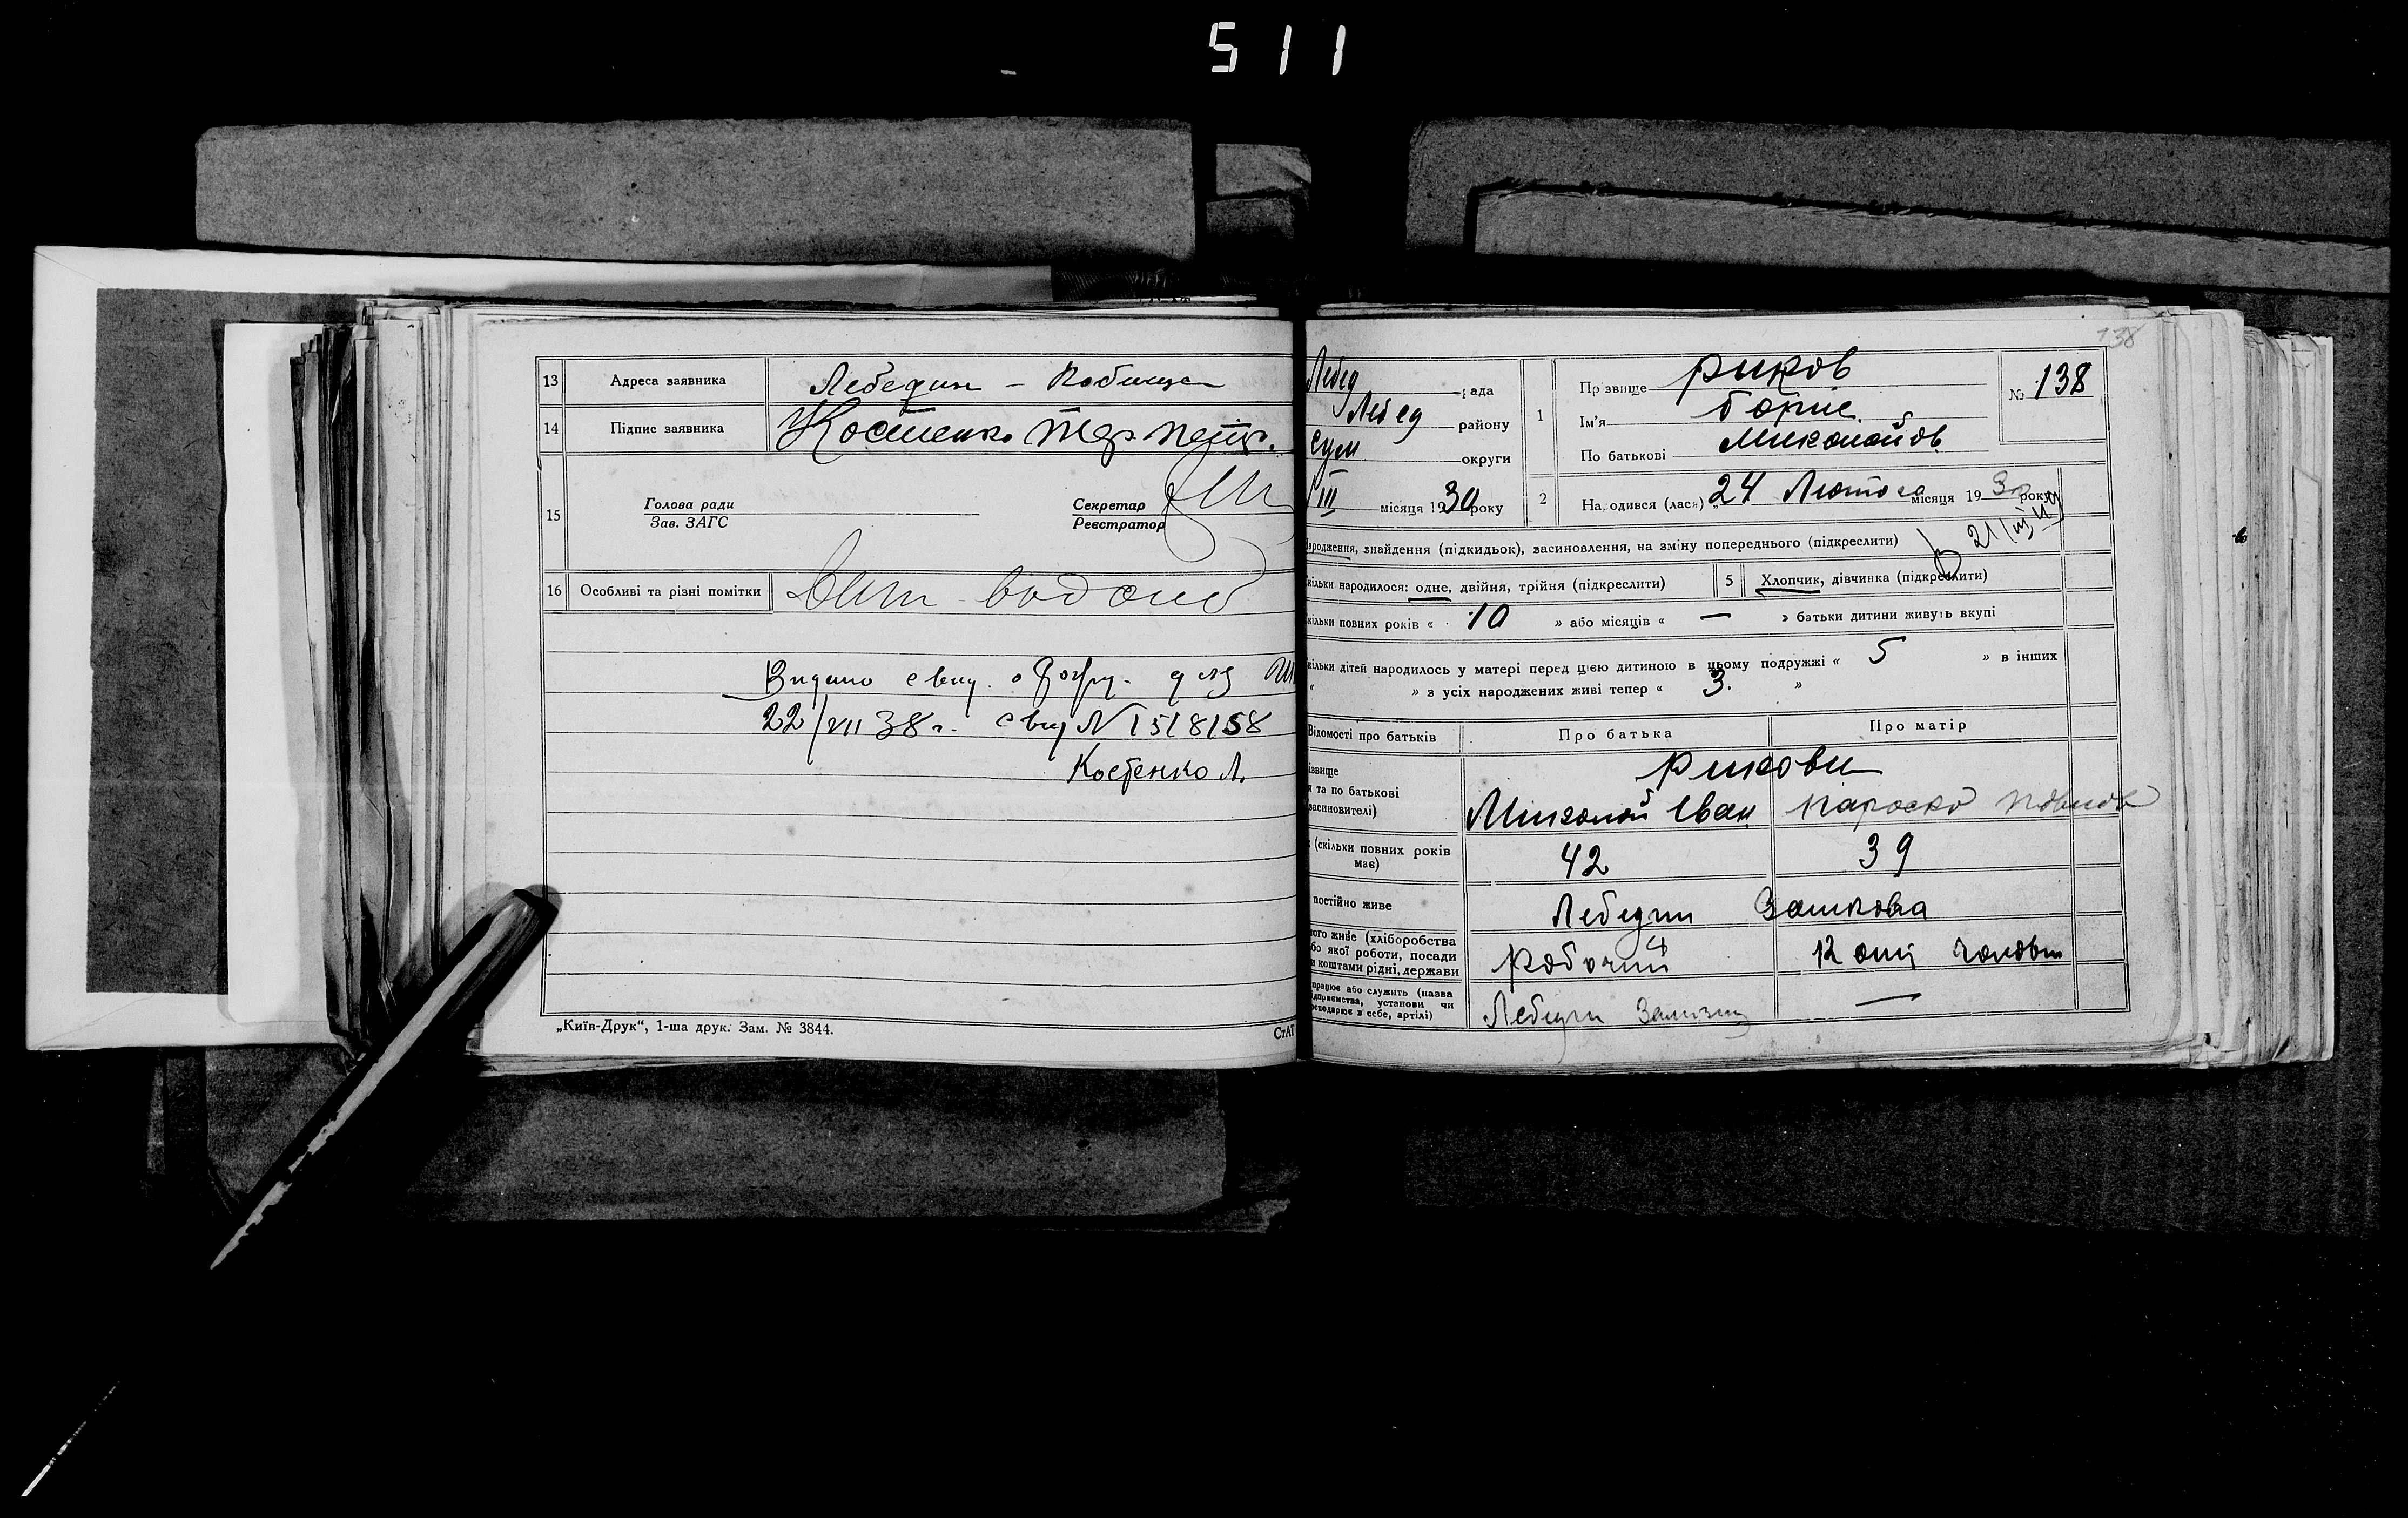 511
13 Адреса заявника Лебедин –
14 Підпис заявника Костенко
15 Голова ради
Зав. ЗАГС
Секретар
Реєстратор
16 Особливі та різні помітки
Видано свид.
22/VII 38 г. свид N 1518158
Костенко Л.
„Київ-Друк“, 1-ша друк. Зам. № 3844.
138
Лебед рада
Лебед району
Сум округи
III місяця 1930 року
1 Прізвище Риков
Ім'я Борис
По батькові Миколайов
№ 138
2 Народився (лася) „24 Лютого місяця 1930 року
21/III
народження, знайдення (підкидьок), засиновлення, на зміну попереднього (підкреслити)
кільки народилося: одне, двійня, трійня (підкреслити) 5 Хлопчик, дівчинка (підкреслити)
кільки повних років « 10 » або місяців « — » батьки дитини живуть вкупі
кільки дітей народилось у матері перед цією дитиною в цьому подружжі « 5 » в інших
« » з усіх народжених живі тепер « 3. »
Відомості про батьків Про батька Про матір
ізвище
я та по батькові
засиновителі)
Рикови
Миколай Іван
(скільки повних років має) 42 39
постійно живе Лебедин
ого живе (хліборобства
бо якої роботи, посади
и коштами рідні, держави
Робочий
працює або служить (назва
ідприємства, установи чи
осподарює в себе, артілі)
Лебедин —